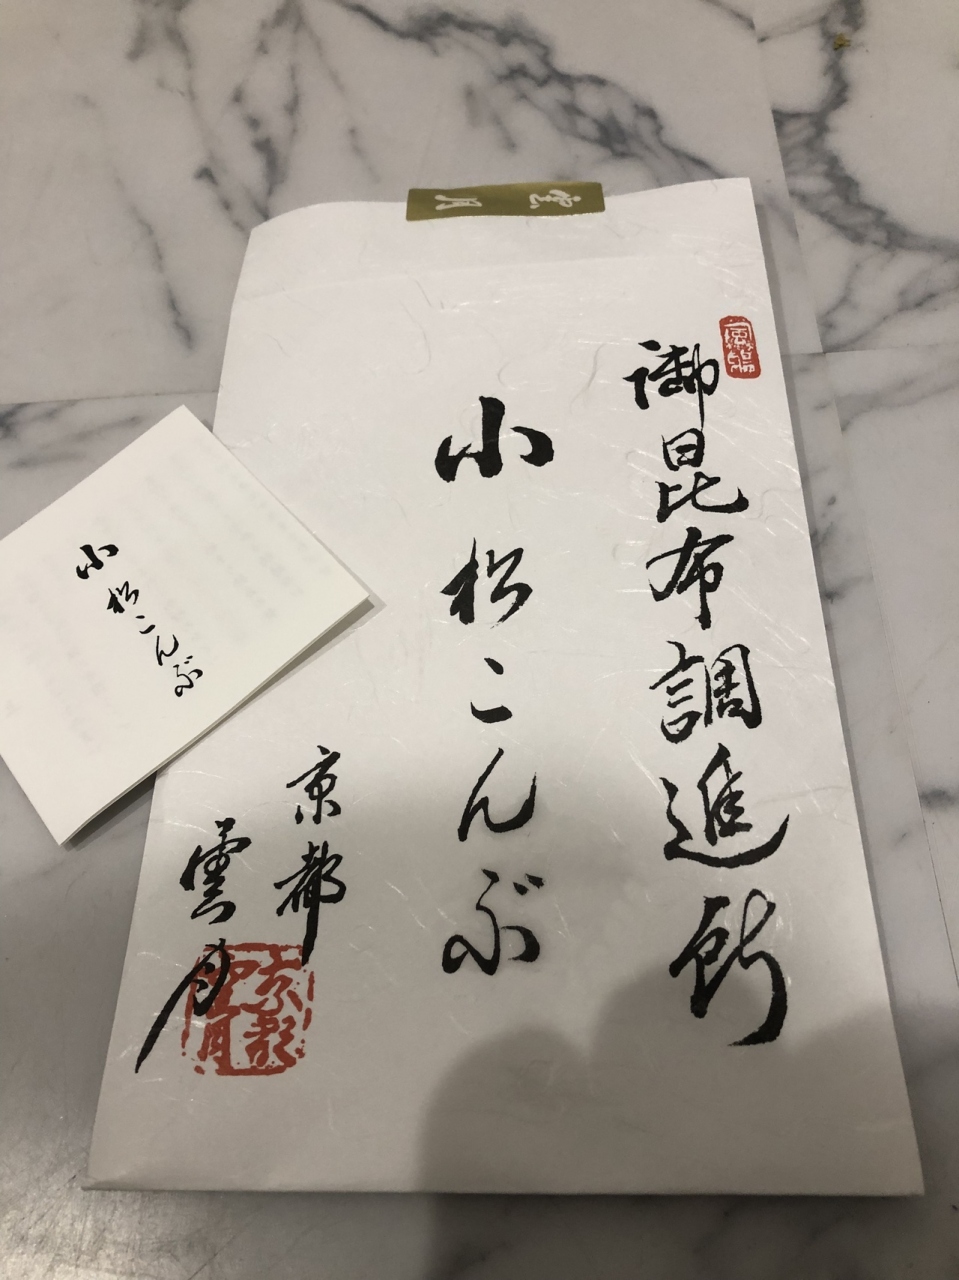 御昆布調進所
小松こんぶ
京都
雲月
京都
雲月
雲月
小松こんぶ